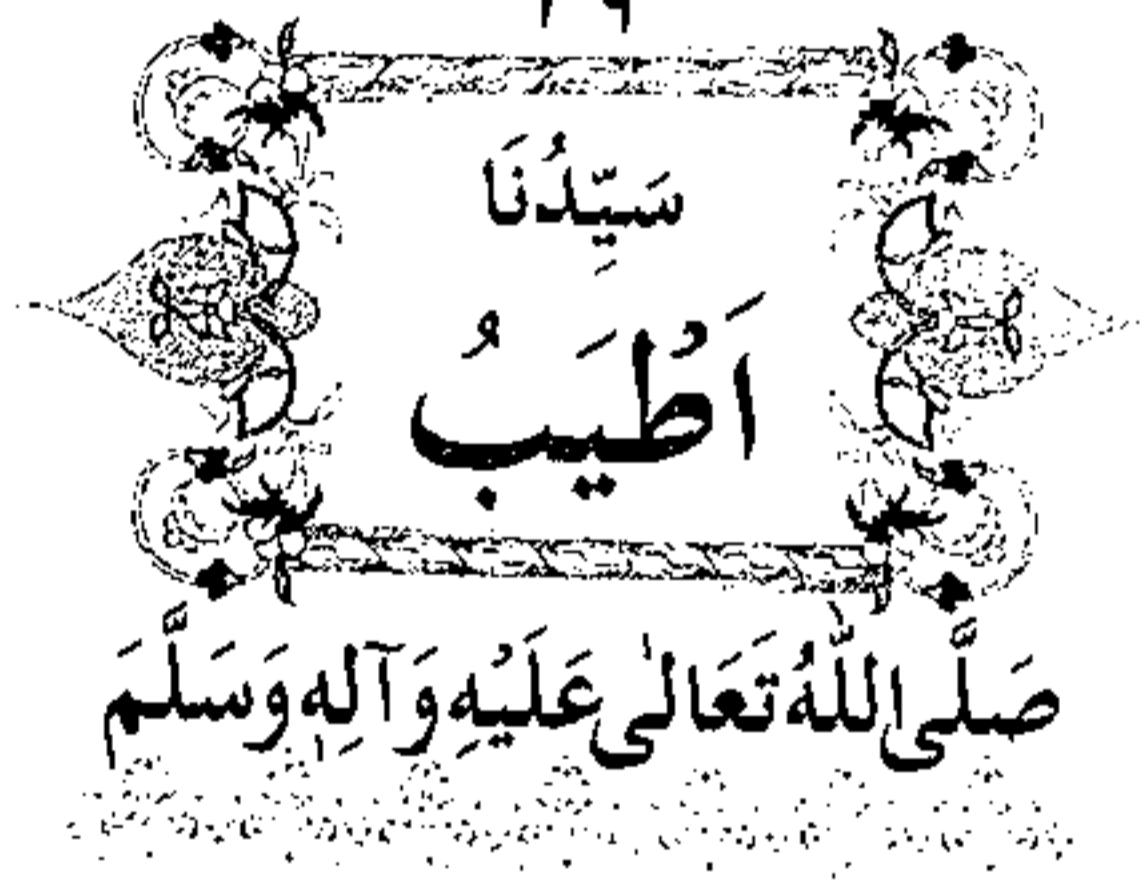 سَيِّدُنَا
اَطْيَبُ
صَلَّى اللّٰهُ تَعَالىٰ عَلَيْهِ وَآلِهٖ وَسَلَّمَ